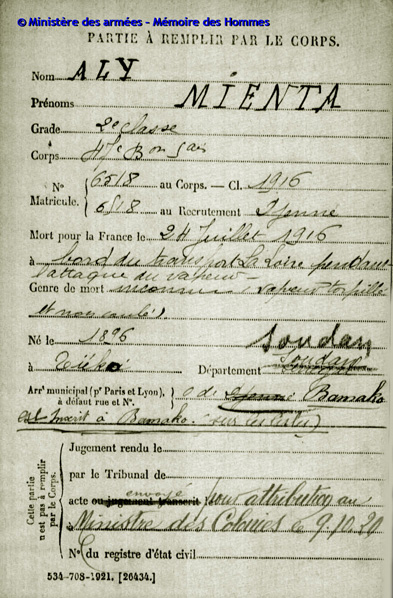 © Ministère des armées - Mémoire des Hommes
PARTIE À REMPLIR PAR LE CORPS.
Nom ALY
Prénoms MIENTA
Grade 2e classe
Corps 47e Bon
No 6518 au Corps. — Cl. 1916
Matricule. 6518 au Recrutement Djenné
Mort pour la France le 24 Juillet 1916
à bord du transport La Loire pendant
l'attaque du vapeur
Genre de mort inconnu (vapeur torpillé
et non coulé)
Né le 1896
Soudan
à Département Soudan
Arrt municipal (pr Paris et Lyon), à défaut rue et No. C de Djenné Bamako
est inscrit à Bamako. sur les listes)
Cette partie n'est pas à remplir par le Corps.
Jugement rendu le
par le Tribunal de
envoyé
acte ou jugement transcrit pour attribution au
à Ministre des Colonies le 9.10.20
No du registre d'état civil
534-708-1921. [26434.]